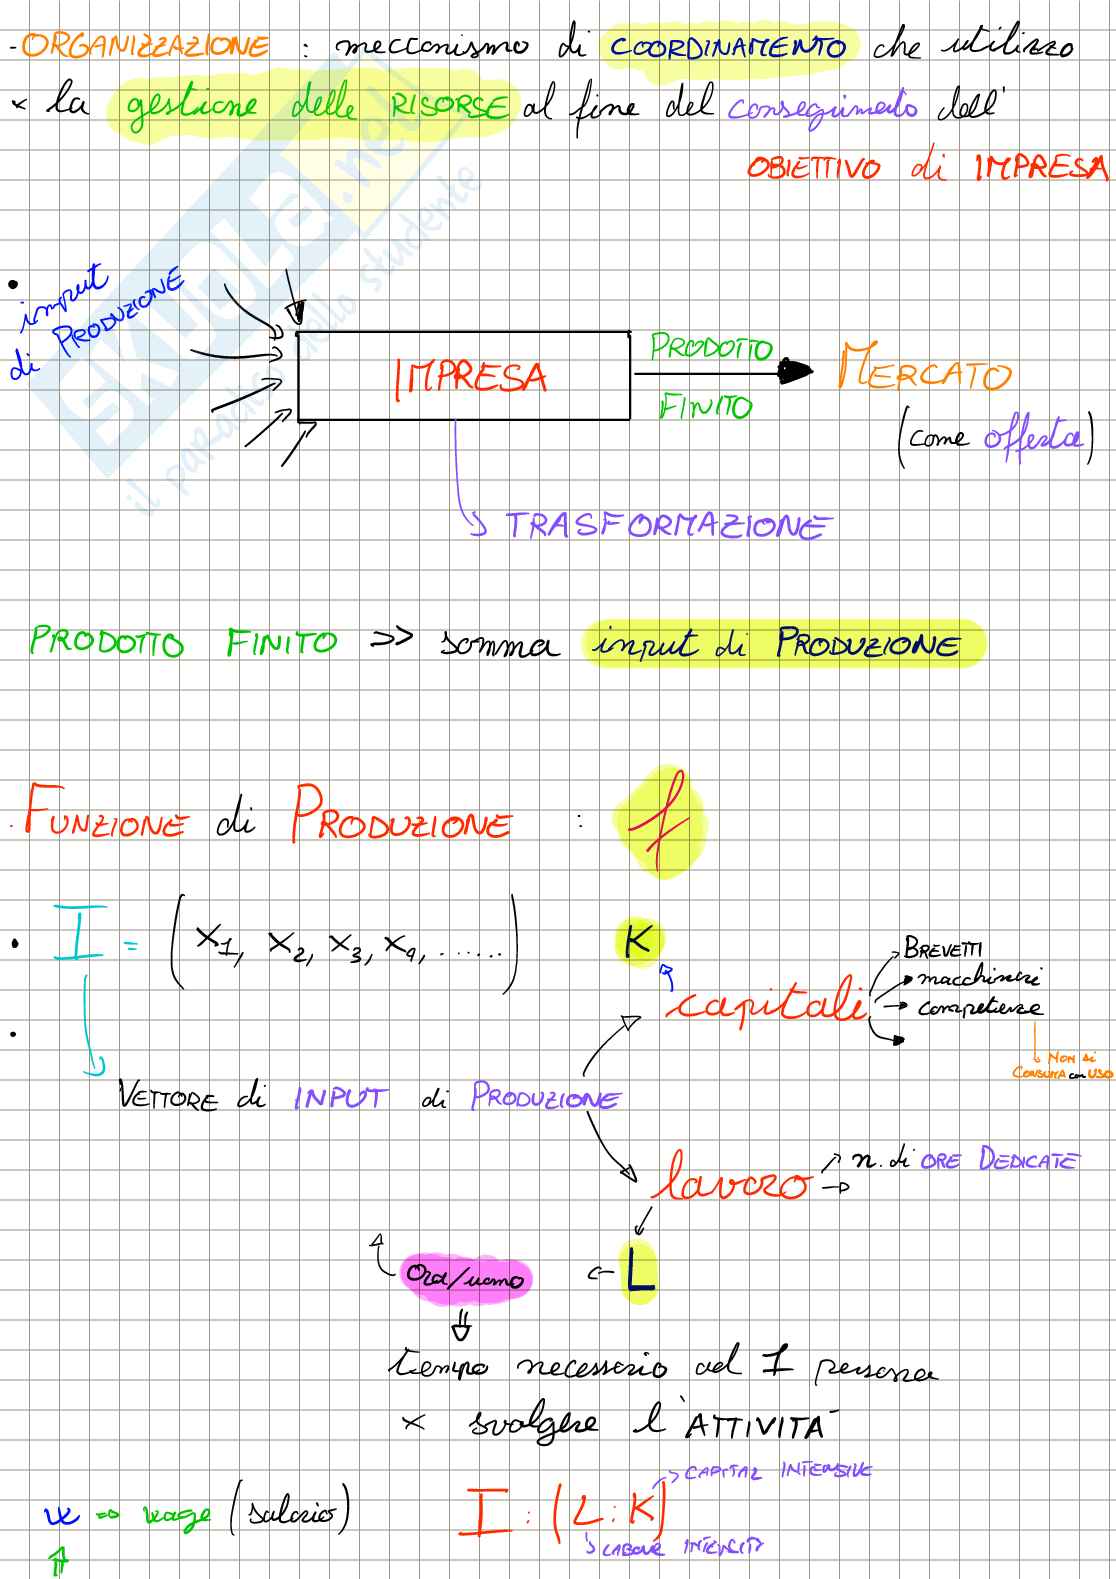 - ORGANIZZAZIONE : meccanismo di COORDINAMENTO che utilizzo
x la gestione delle RISORSE al fine del conseguimento dell'
OBIETTIVO di IMPRESA
• input
di PRODUZIONE
IMPRESA
PRODOTTO
FINITO
MERCATO
(come offerta)
TRASFORMAZIONE
PRODOTTO FINITO >> somma input di PRODUZIONE
. FUNZIONE di PRODUZIONE : f
• I = (X1, X2, X3, X4, ......)
K
capitali
BREVETTI
macchinari
competenze
NON si
CONSUMA con USO
•
VETTORE di INPUT di PRODUZIONE
lavoro
n. di ORE DEDICATE
L
Ora/uomo
tempo necessario ad 1 persona
x svolgere l'ATTIVITÀ
CAPITAL INTENSIVE
w => wage (salario)
I : (L : K)
LABOUR INTENSITY
skuola.net
il paradiso dello studente